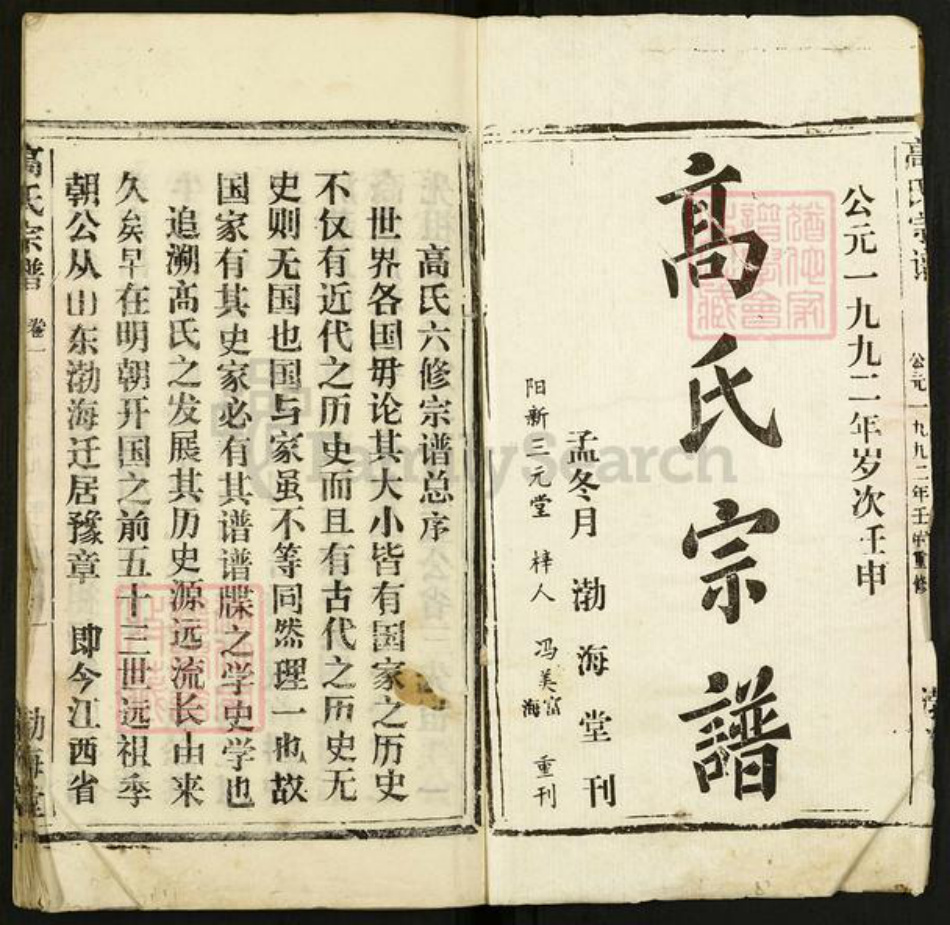 公元一九九二年岁次壬申
高氏宗譜
孟冬月 渤海堂刊
阳新三元堂 梓人 冯美富海 重刊
公元一九九二年壬申重修
高氏六修宗谱总序
世界各国毋论其大小皆有国家之历史
不仅有近代之历史而且有古代之历史无
史则无国也国与家虽不等同然理一也故
国家有其史家必有其谱谱牒之学史学也
追溯高氏之发展其历史源远流长由来
久矣早在明朝开国之前五十三世远祖季
朝公从山东渤海迁居豫章 即今江西省
高氏宗譜 卷一 渤海堂
FamilySearch